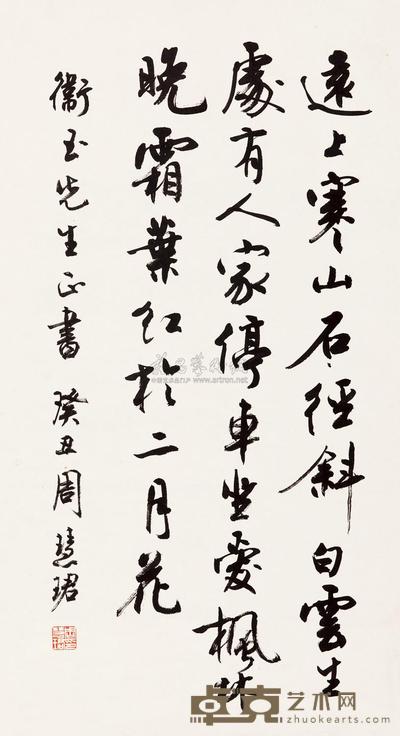 遠上寒山石徑斜白雲生
處有人家停車坐愛楓林
晚霜葉紅於二月花
衞玉先生正書 癸丑周慧珺
卓克艺术网
zhuokearts.com
www.artron.net